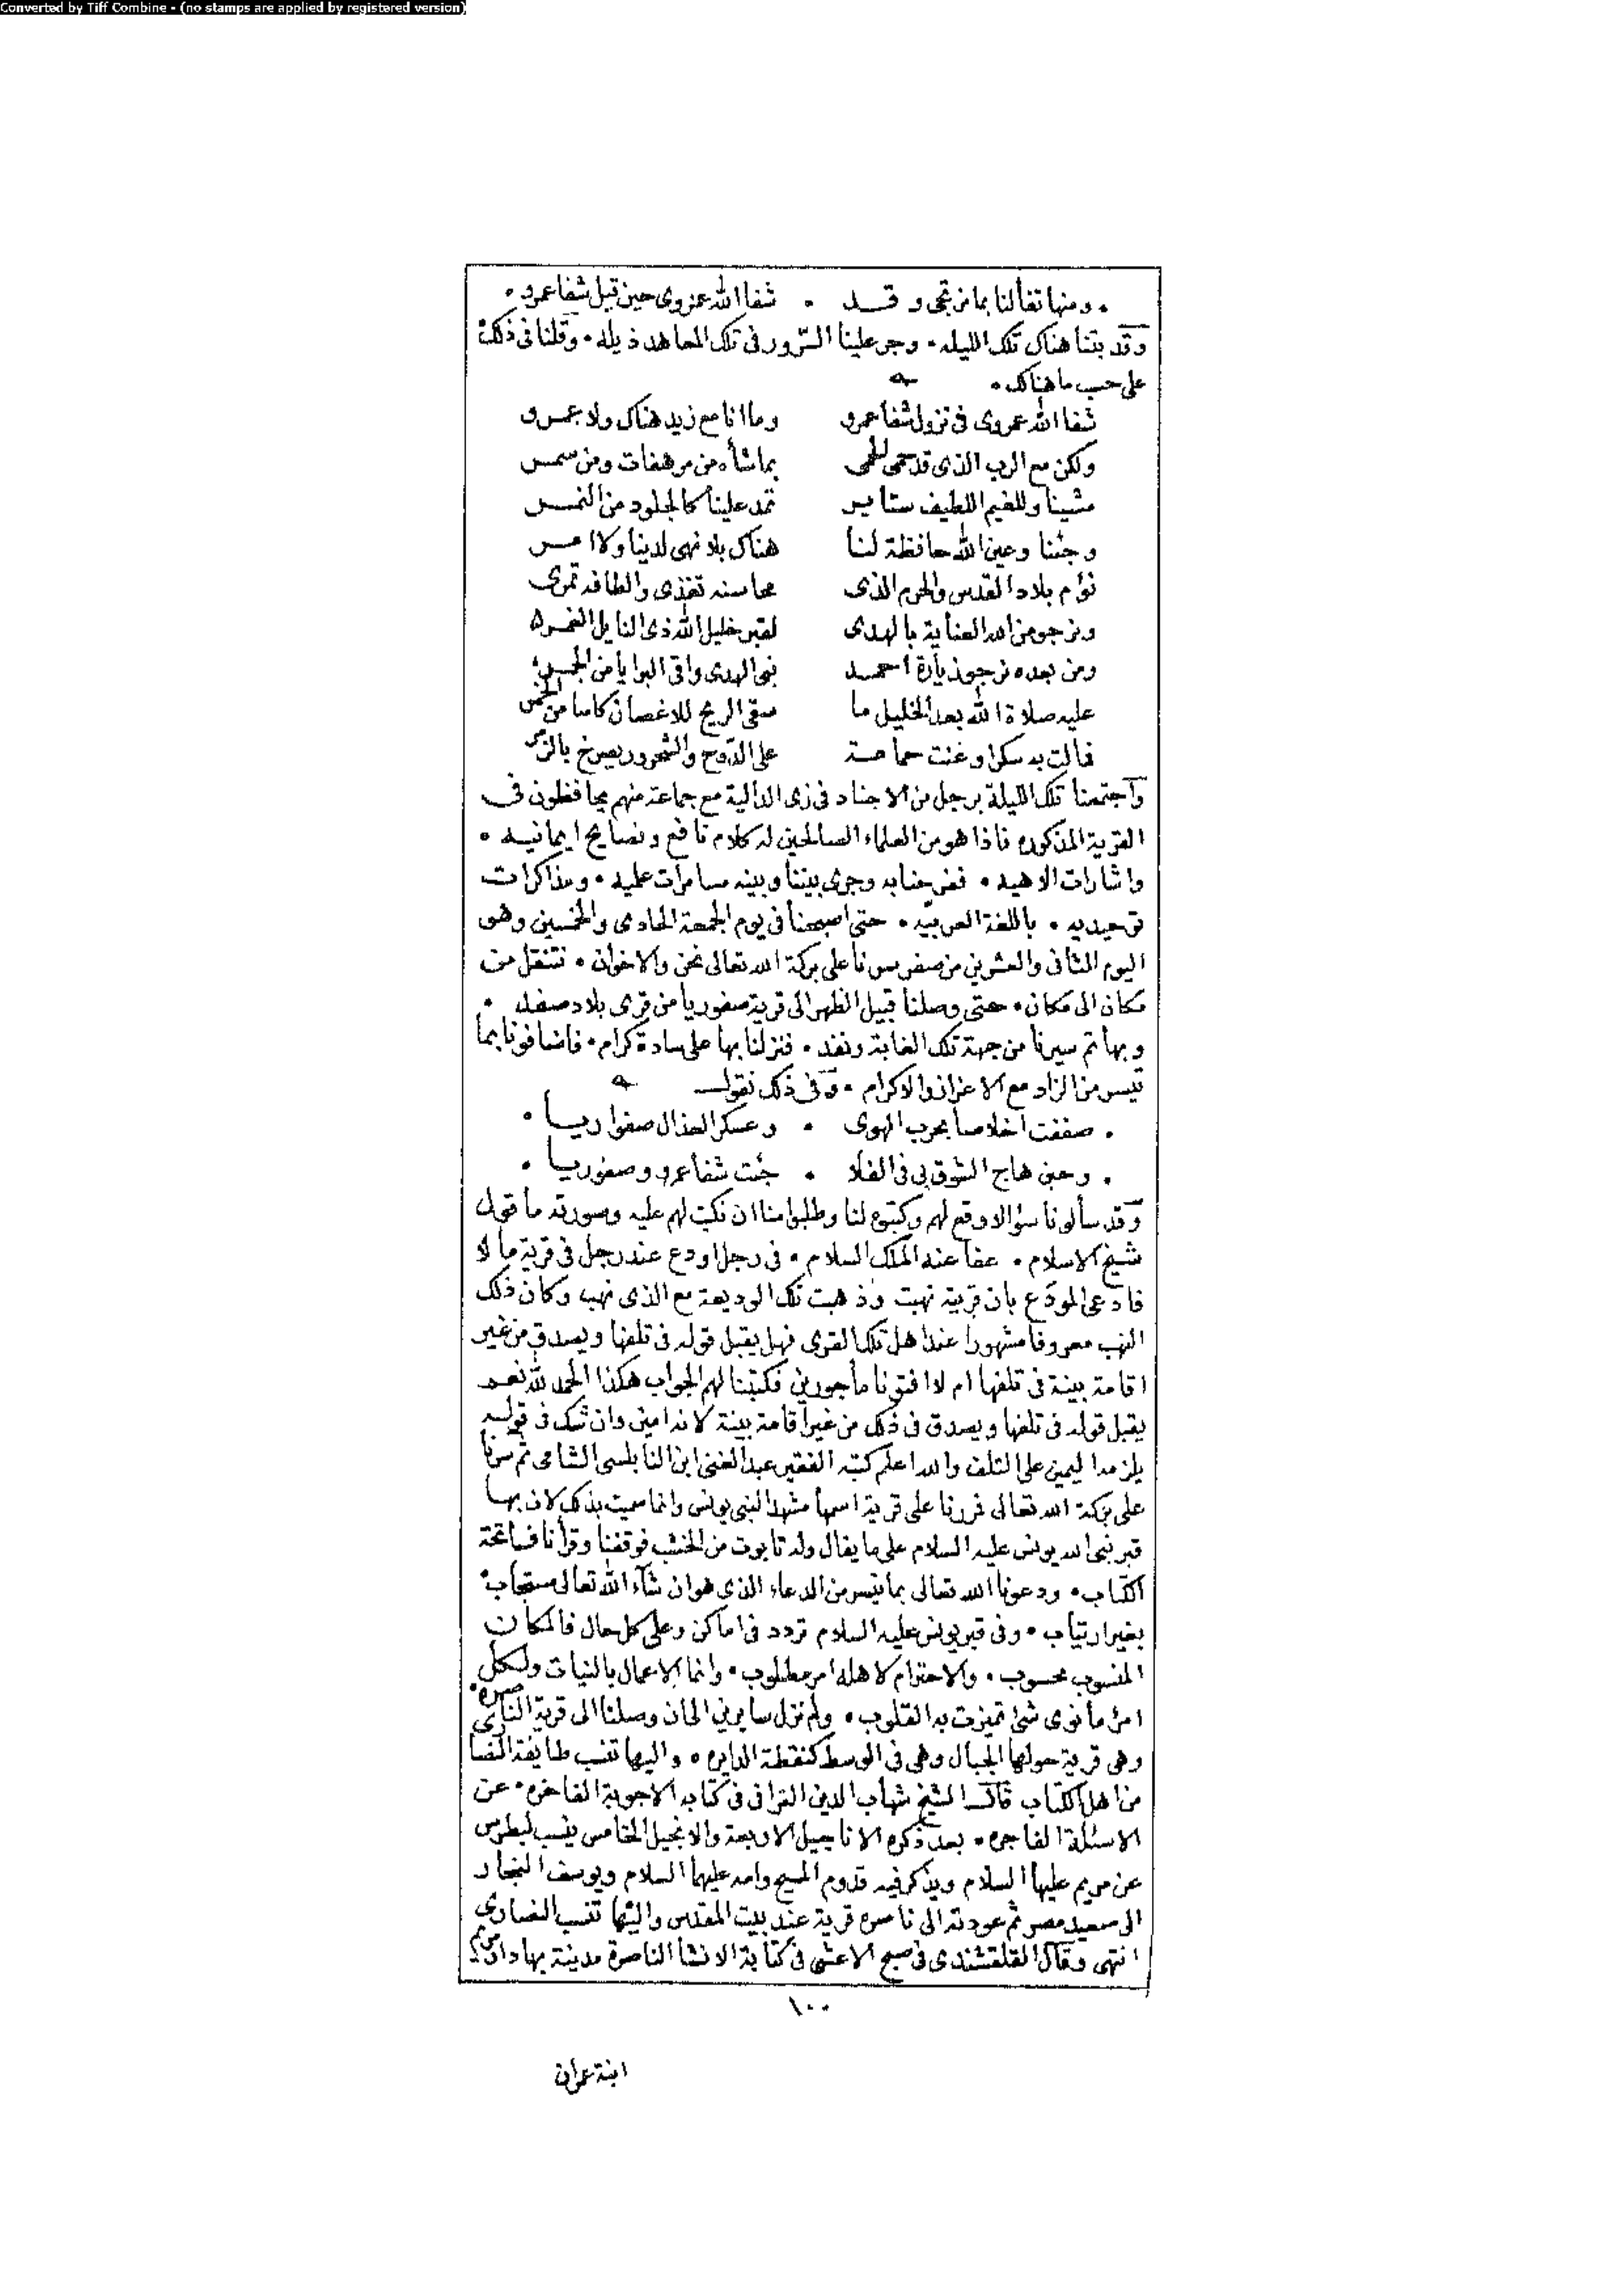 Converted by Tiff Combine - (no stamps are applied by registered version)
ومنها تفألنا بما نرتجى وقد • شفا الله عمروى حين قبل شفا عمرو •
وقد بتنا هناك تلك الليله • وجر علينا السرور فى تلك المعاهد ذيله • وقلنا فى ذلك
على حسب ما هنالك •
شفا الله عمروى فى نزول شفا عمرو وما انا مع زيد هناك ولا عمرو
ولكن مع الرب الذى قد حمى الحمى بما شأه من مرهفات ومن سمر
مشينا وللغيم اللطيف ستاير تمد علينا كالجلود من النمر
وجئنا وعين الله حافظة لنا هناك بلا نهى لدينا ولا امر
نؤم بلاد القدس والحرم الذى محاسنه تغذى والطافه تمرى
ونرجو من الله العناية بالهدى لقبر خليل الله ذى النايل الغمر
ومن بعده نرجو زيارة احمد نبى الهدى واقى البرايا من الجمر
عليه صلاة الله بعد الخليل ما سقى الريح للاغصان كاسا من الخمر
فمالت به سكرا وغنت حمامة على الدوح والشحرور يصرخ بالزمر
واجتمعنا تلك الليلة برجل من الاجناد فى زى الدالية مع جماعة منهم يحافظون فى
القرية المذكوره فاذا هو من العلماء الصالحين له كلام نافع ونصايح ايمانيه •
واشارات الاهيه • فمن جنابه وجرى بيننا وبينه مسامرات علميه • ومذاكرات
توحيديه • باللغة العربيه • حتى اصبحنا فى يوم الجمعة الحادى والخمسين وهو
اليوم الثانى والعشرين من صفر سرنا على بركة الله تعالى نحن والاخوان • نتنقل من
مكان الى مكان • حتى وصلنا قبيل الظهر الى قرية صفوريا من قرى بلاد صفد •
وبها تم سيرنا من جهة تلك الغابة ونفد • فنزلنا بها على سادة كرام • فاضافونا بما
تيسر من الزاد مع الاعزاز والاكرام • وفى ذلك نقول
• صففت اخلاصا بحرب الهوى • وعسكر العذال صفوا ريا •
• وحين هاج الشوق بى فى الفلا • جئت شفا عمرو وصفوريا •
وقد سألونا سؤالا وقع لهم وكتبوه لنا وطلبوا منا ان نكتب لهم عليه وصورته ما قول
شيخ الاسلام • عفا عنه الملك السلام • فى رجل اودع عند رجل فى قرية مالا
فادعى المودع بان قريته نهبت وذهبت تلك الوديعة مع الذى نهب وكان ذلك
النهب معروفا مشهورا عند اهل تلك القرى فهل يقبل قوله فى تلفها ويصدق من غير
اقامة بينة فى تلفها ام لا افتونا مأجورين فكتبنا لهم الجواب هكذا الحمد لله نعم
يقبل قوله فى تلفها ويصدق فى ذلك من غير اقامة بينة لانه امين وان شك فى قوله
يلزمه اليمين على التلف والله اعلم كتبه الفقير عبد الغنى ابن النابلسى الشامى ثم سرنا
على بركة الله تعالى فمررنا على قرية اسمها مشهد النبى يونس وانما سميت بذلك لان بها
قبر نبى الله يونس عليه السلام على ما يقال وله تابوت من الخشب فوقفنا وقرأنا فاتحة
الكتاب • ودعونا الله تعالى بما تيسر من الدعاء الذى هو ان شآء الله تعالى مستجاب •
بغير ارتياب • وفى قبر يونس عليه السلام تردد فى اماكن وعلى كل حال فالمكان
المنسوب محسوب • والاحترام لاهله امر مطلوب • وانما الاعمال بالنيات ولكل
امرئ ما نوى شئ تميزت به القلوب • ولم نزل سايرين الى ان وصلنا الى قرية الناصره •
وهى قرية حولها الجبال وهى فى الوسط كنقطة الدايره • واليها تنسب طايفة النصارى
من اهل الكتاب قال الشيخ شهاب الدين القرافى فى كتابه الاجوبة الفاخره • عن
الاسئلة الفاجره • بعد ذكره الاناجيل الاربعة والانجيل الخامس ينسب لبطرس
عن مريم عليها السلام ويذكر فيه قدوم المسيح وامه عليهما السلام ويوسف النجار
الى سعيد مصر ثم عودته الى ناصره قرية عند بيت المقدس واليها تنسب النصارى
انتهى وقال القلقشندى فى صبح الاعشى فى كتابة الانشا الناصرة مدينة بها دار مريم
١٠٠
ابنة عمران